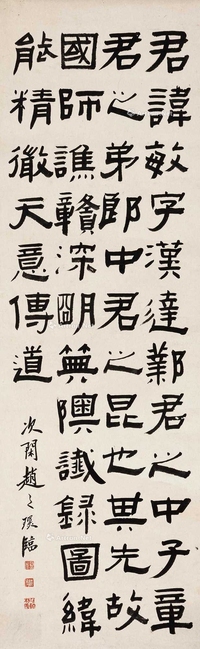 君諱敏字漢達鄴君之中子章
君之弟郎中君之昆也其先故
國師譙贛深明典隩讖錄圖緯
能精微天意傳道
次閑趙之琛臨